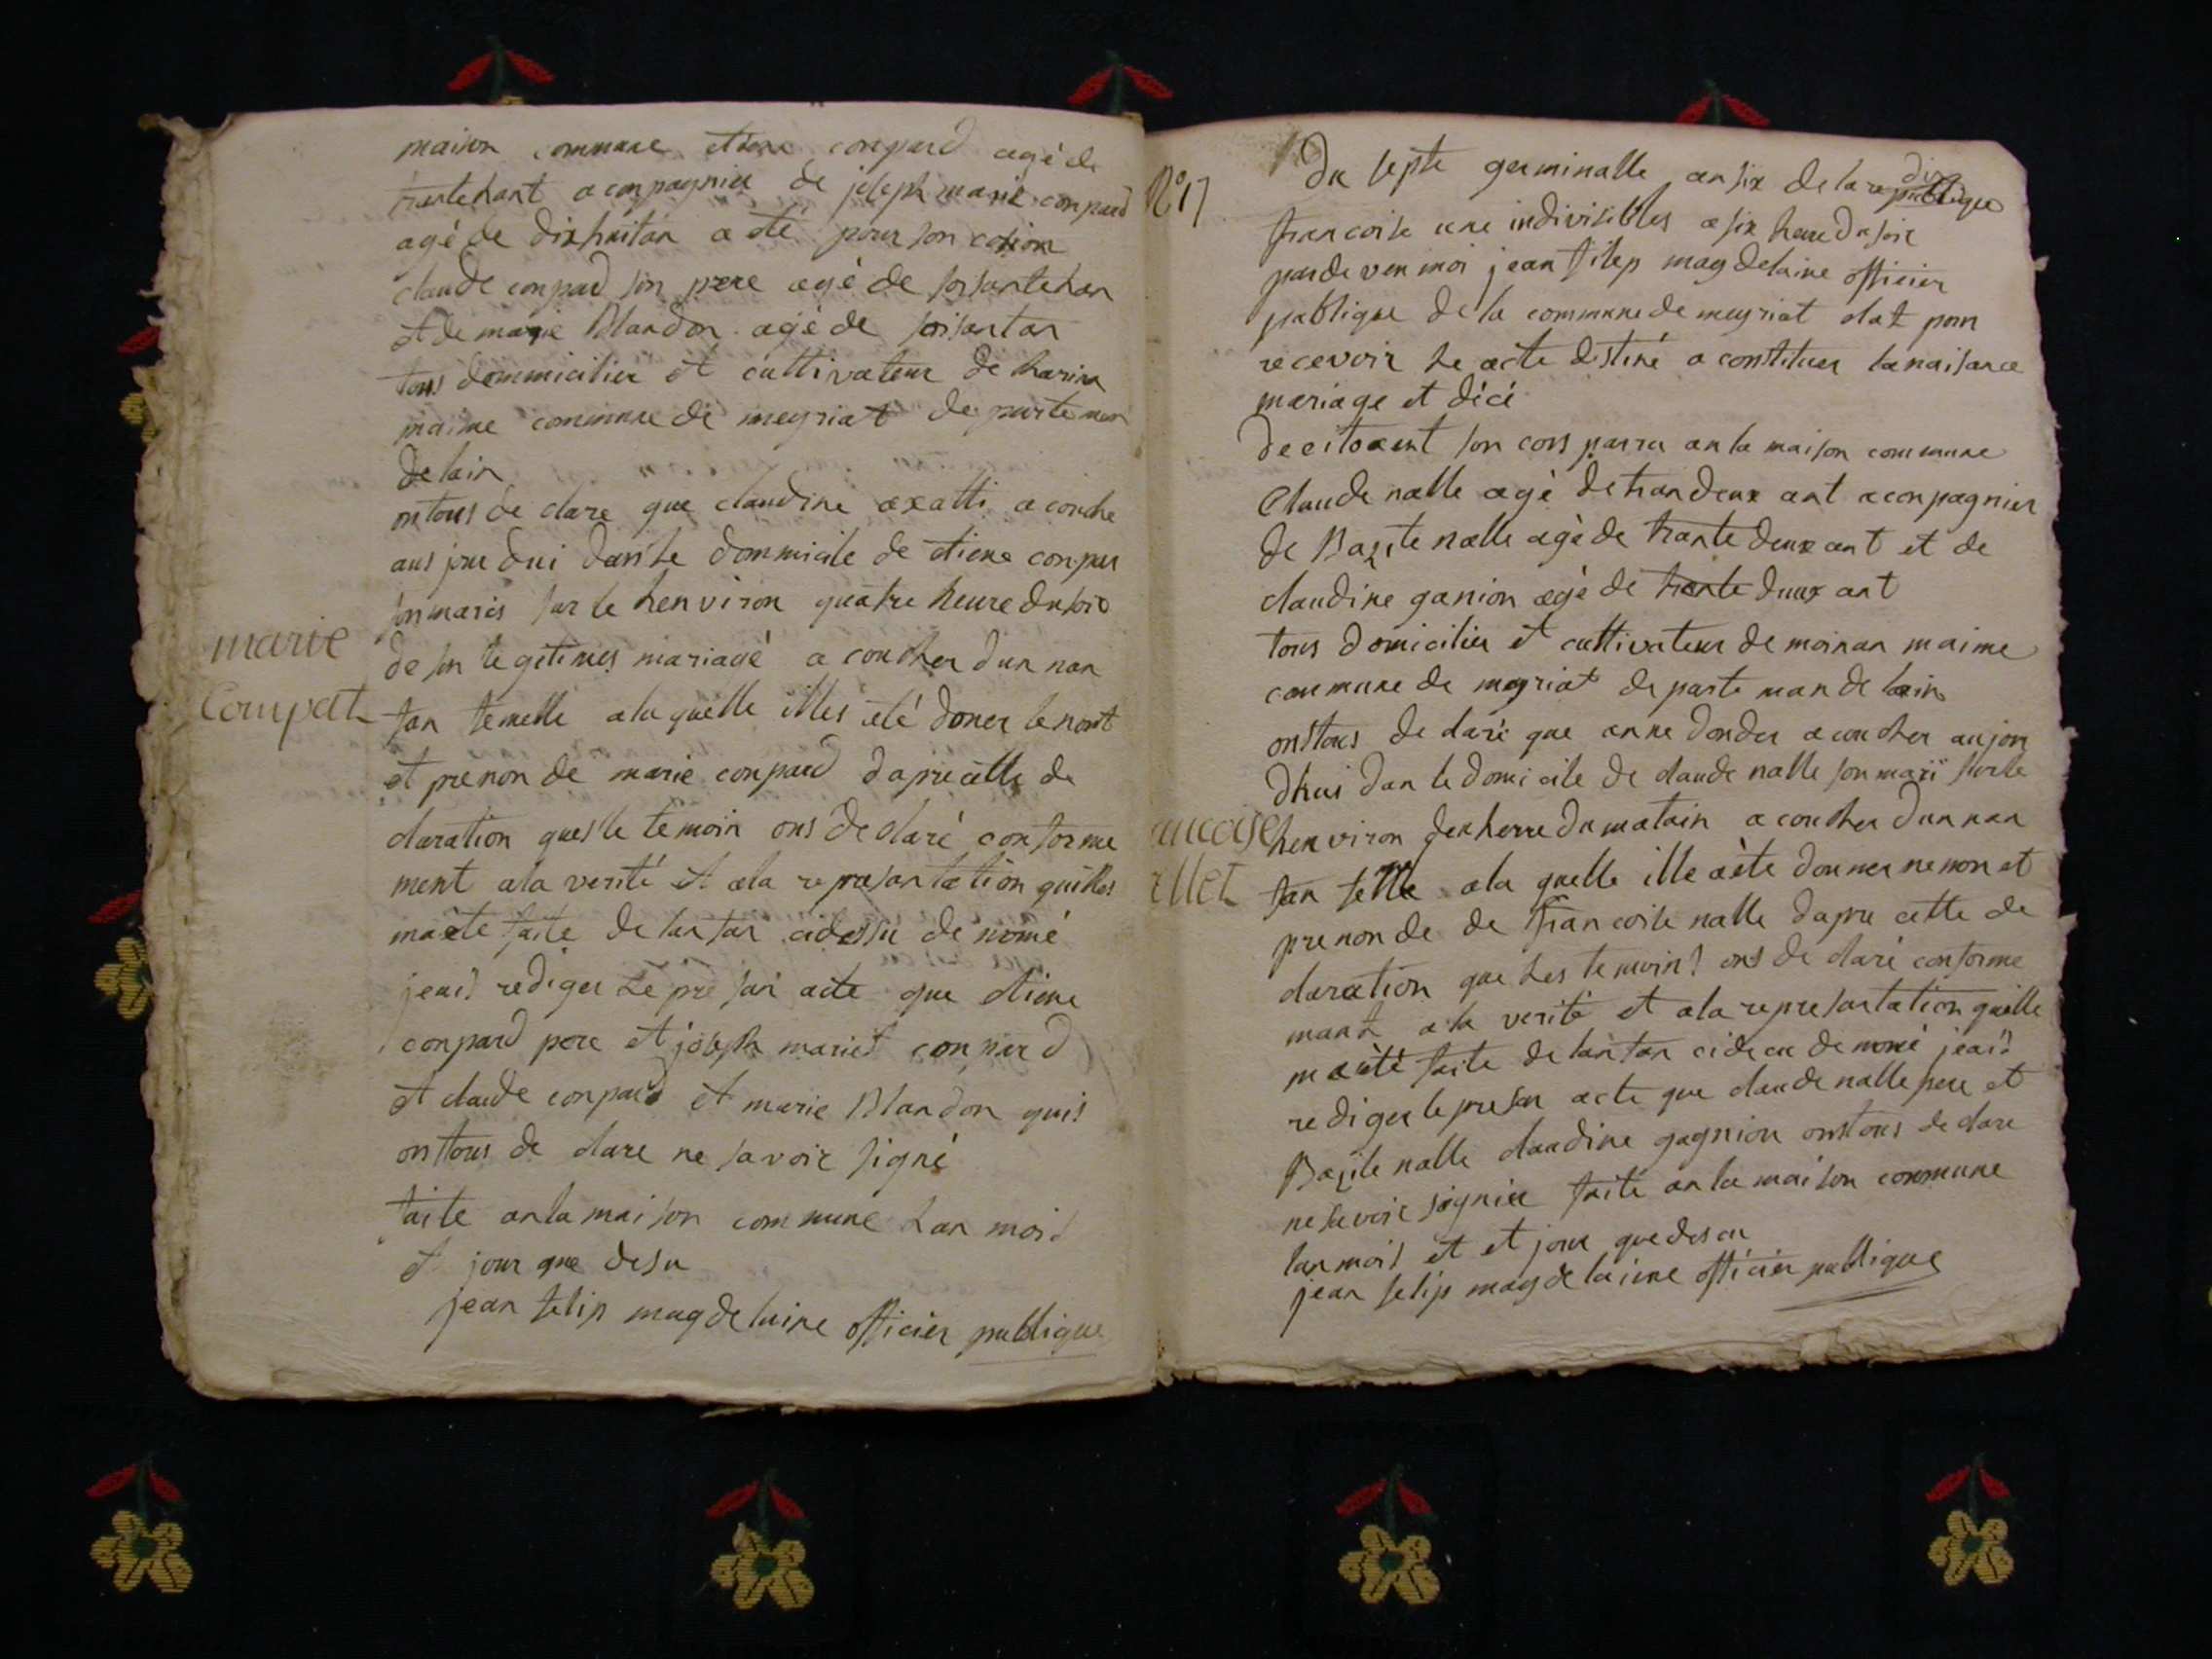 maison commune etiene conpard agé de
trantehant aconpagnier de joseph marie conpard
agé de dixhuitan a cté pour son
claude conpard son pere agé de soisantehan
et de marie Blandon agé de soisantan
tous dommicilier et cultivateur de
maime commune de meyriat departemen
delain
ontous de clare que claudine axatti a couche
aus jour dui dans le dommicile de etiene conper
son maris sur le henviron quatre heure du soir
de son legetimes mariagé a coucher dun nan
fan femelle ala quelle illes été doner le nont
et prenon de marie conpard dapre cette de
claration ques le temoin ons declaré conforme
ment ala verité et ala represantation quilles
maète faite de lanfan cidessu dénomé
jeais rediger le presan acte que etiene
conpard pere et joseph mariet conpard
et claude conpard et marie Blandon quis
ontous de clare ne savoir signé
faite anla maison commune lan mois
et jour que desu
jean felip magdelaine officier publique
marie
Compat
N° 17
Du septe germinalle an six de la republique
dix
francoise une indivisibles a six heure du soir
par de ven moi jean filep magdelaine officier
publique de la commune de meyriat elat pour
recevoir le acte destiné a constituer la naisance
mariage et déci
de citoient son conparru an la maison commune
Claude nalle agé de trandeux ant aconpagnier
de Bazile nalle agé de trante deux ant et de
claudine ganion agé de trante deux ant
tous domicilier et cultivateur de moinan maime
commune de meyriat departeman de lain
onstous de claré que anne donder a coucher aujour
dhui dan le domicile de claude nalle son marï sur le
henviron heure du matain a coucher dun nan
fan felle ala quelle ille aète donner ne non et
prenon de de francoise nalle dapre cette de
claration que les temoins ons de claré conforme
mant a la verité et ala represantation quille
maèté faite de lanfan cidecu de nomé jeais
rediger le presan acte que claude nalle pere et
Bazile nalle claudine gagnion onstous de clare
ne savoir signier faite an la maison commune
lan mois et et jour que desu
jean felip magdelaine officier publique
ancoise
ellet